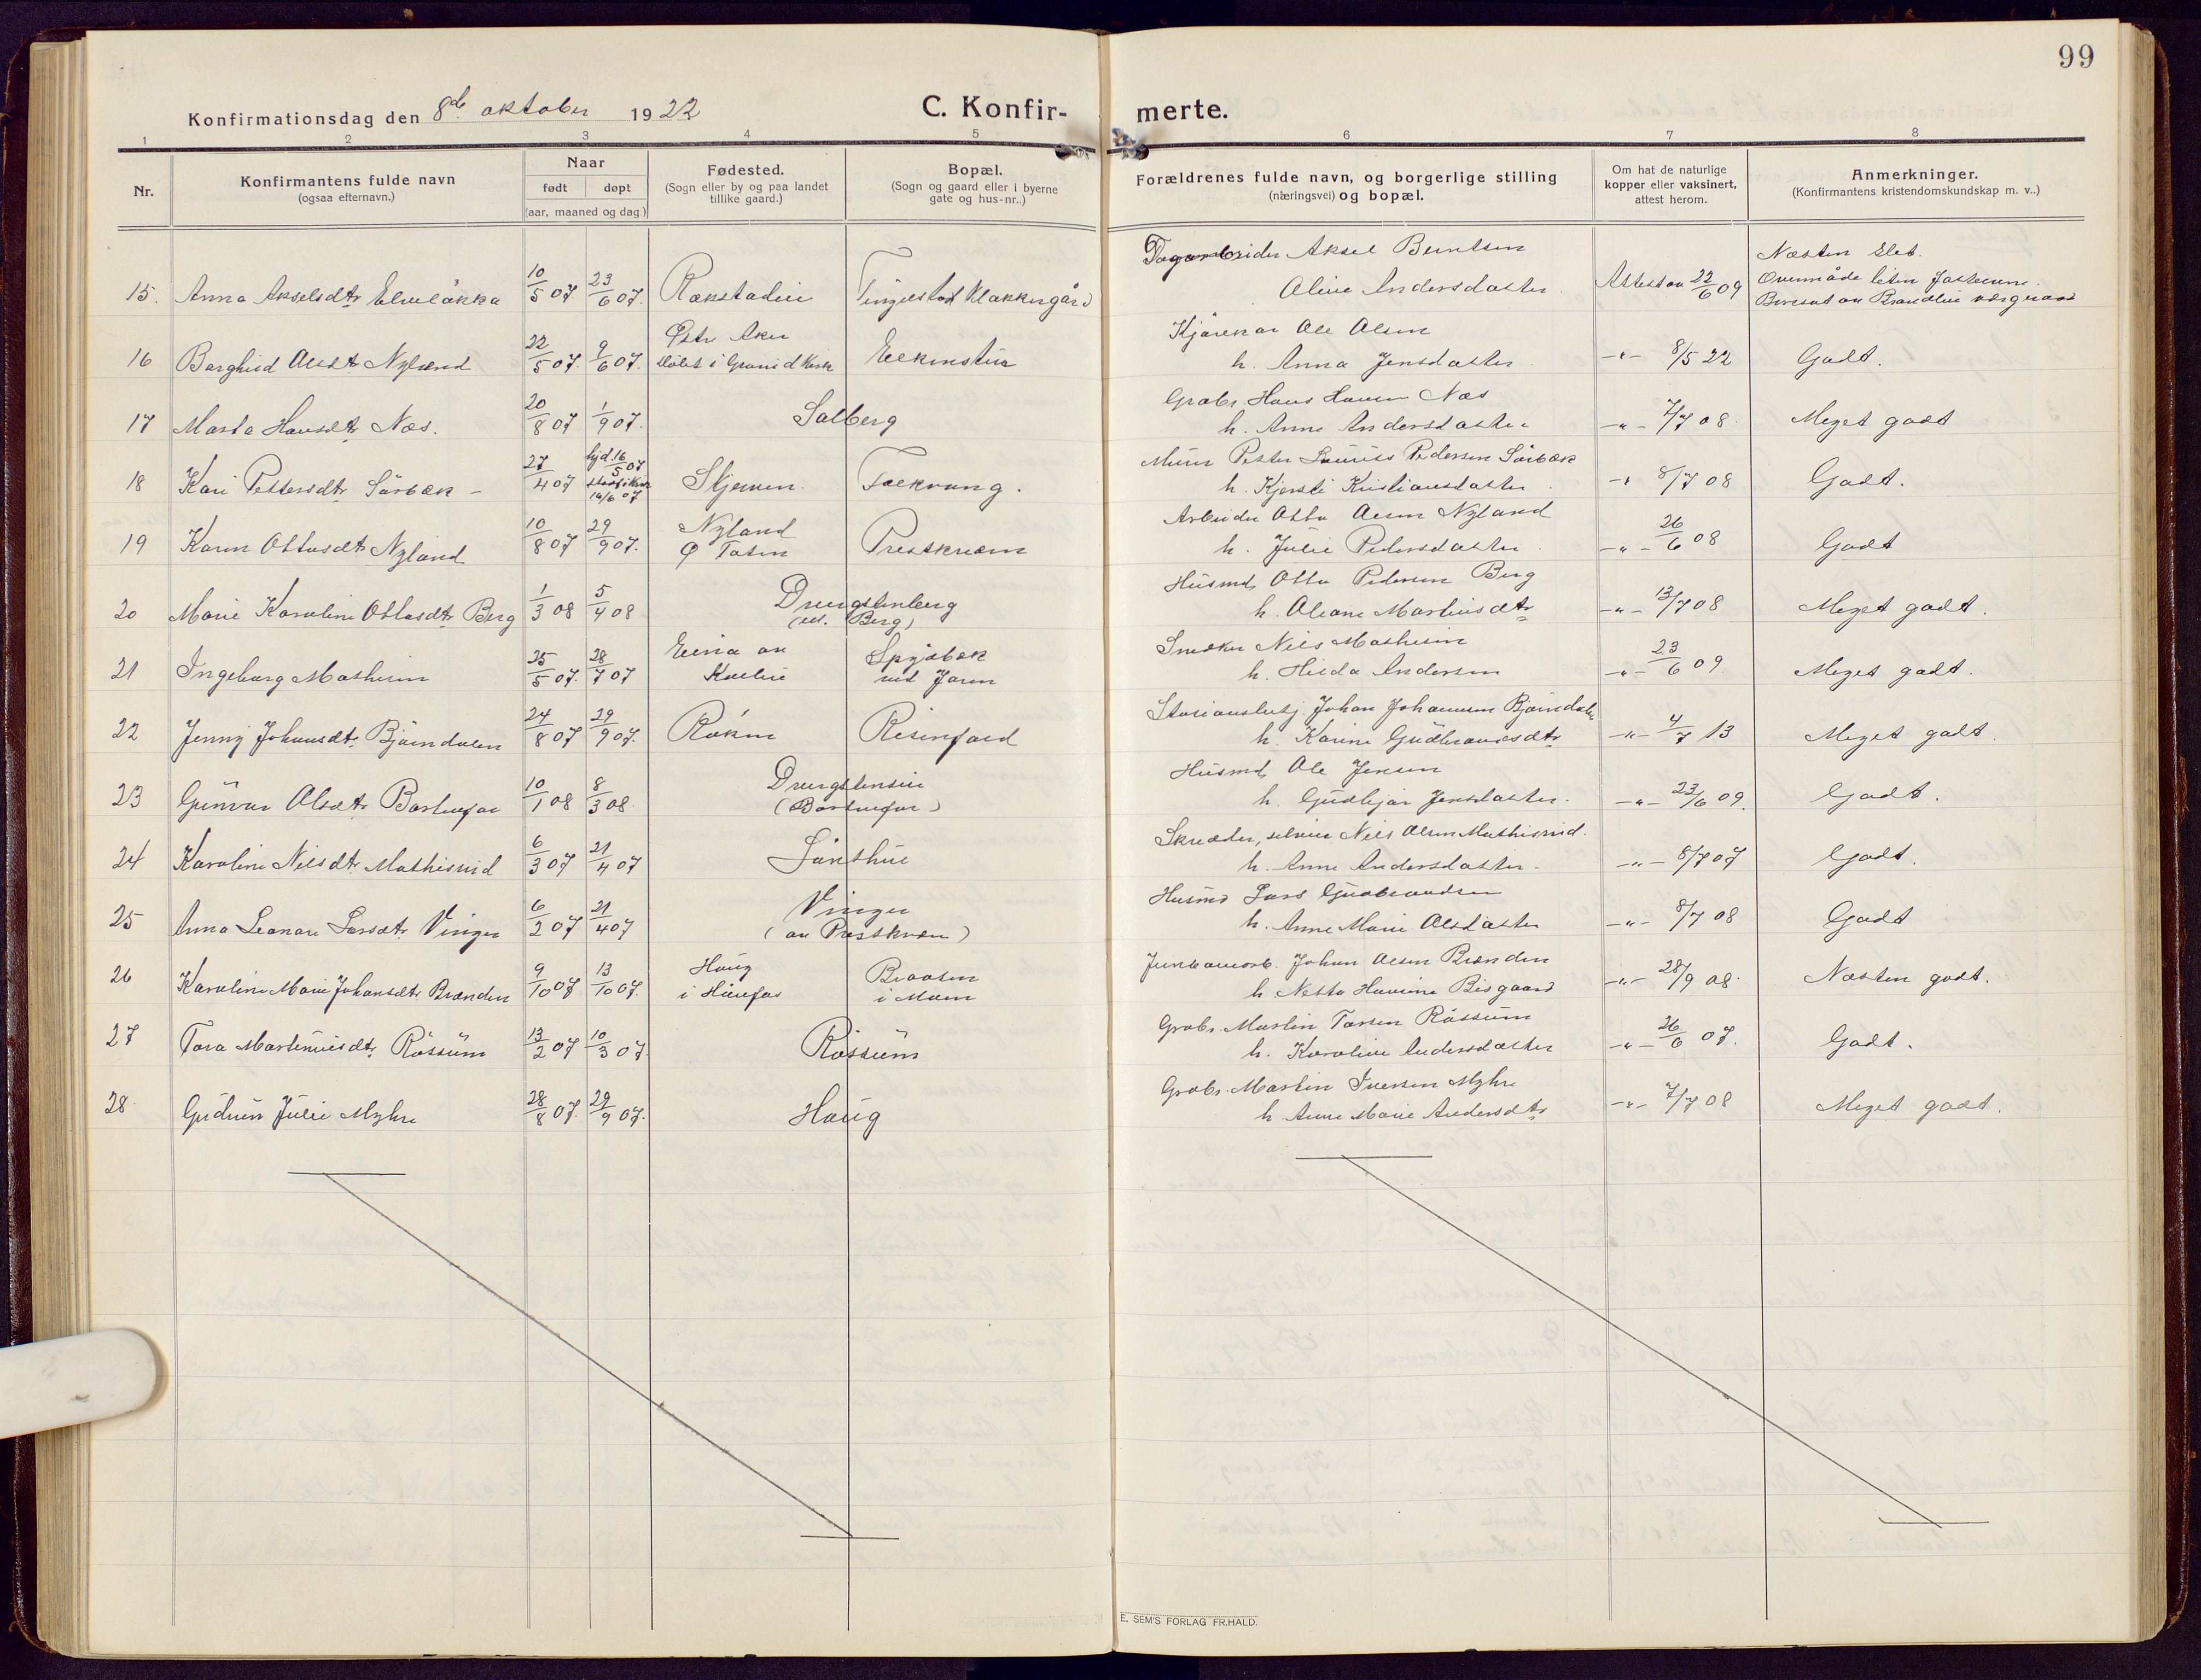 99
Konfirmationsdag den 8de oktober 1922
C. Konfir-
merte.
1 2 3 4 5 6 7 8
Nr.
Konfirmantens fulde navn
(ogsaa efternavn.)
Naar
født døpt
(aar, maaned og dag.)
Fødested.
(Sogn eller by og paa landet
tillike gaard.)
Bopæl.
(Sogn og gaard eller i byerne
gate og hus-nr..)
Forældrenes fulde navn, og borgerlige stilling
(næringsvei) og bopæl.
Om hat de naturlige
kopper eller vaksinert,
attest herom.
Anmerkninger.
(Konfirmantens kristendomskundskap m. v..)
Aksel Berntsen Næsten
15. Anna Akselsdtr 10/5 07 23/6 07. Tingelstad Klækkergård Oline Andersdatter Attest av 22/6 09
Østr Aker Kjørekar Ole Olsen
16 Borghild Olsdtr Nyland 22/5 07. 9/6 07. døbt i Kirke h. Anna Jensdatter -"- 8/5 22 Godt.
Grdbr. Hans Hansen Næs
17 Marta Hansdtr Næs. 20/8 07 1/9 07. Solberg h. Anne Andersdatter -"- 7/7 08. Meget godt
hjd. 16/5 07 Murer Petter Laurits Pedersen Sørbæk
18 Kari Pettersdtr Sørbæk 27/4 07 Skjerven Folkvang. h. Kjersti Kristiansdatter -"- 8/7 08 Godt.
Nyland Arbeider Otto Olsen Nyland
19 Karen Ottosdtr Nyland 10/8 07 29/9 07. Ø Toten Prestkvern h. Julie Pedersdatter -"- 26/6 08 Godt
Husmd. Otto Pedersen Berg
20 Marie Karoline Ottosdtr Berg 1/3 08 5/4 08 Dvergstenberg h. Oleane Martinsdtr -"- 13/7 08 Meget godt.
Berg)
Snedker Nils Mathesen
21 Ingeborg Mathesen 25/5 07. 28/7 07 ved Jaren h. Hilda Andersen -"- 23/6 09 Meget godt.
Stasionsbetj. Johan Johannesen Bjørndalen
22 Jenny Johansdtr Bjørndalen 24/8 07 29/9 07. Røken h. Karine Gudbransdtr -"- 4/7 13 Meget godt.
Husmd. Ole Jensen
23 Gunvor Olsdtr 10/1 08 8/3 08 h. Gudbjør Jensdatter. -"- 23/6 09. Godt.
Skrædder, Nils Olsen Mathiseid.
24 Karoline Nilsdtr Mathiseid 6/3 07 21/4 07 h. Anne Andersdatter. -"- 8/7 07 Godt.
Vinger Husmd Lars Gudbrandsen
25 Anna Leonore Larsdtr. Vinger 6/2 07 21/4 07 (av Prestkvern) h. Anne Marie Olsdatter -"- 8/7 08 Godt
Haug Jernbanearb. Johan Olsen Brænden
26 Karoline Marie Johansdtr Brænden 9/10 07 13/10 07. i Hønefos i Moen h. Netta Bisgaard -"- 28/9 08. Næsten godt.
Grdbr. Martin Torsen Røssum
27 Tora Martinusdtr. Røssum 13/2 07 10/3 07. Røssum h. Karoline Andersdatter -"- 26/6 07. Godt.
Grdbr. Martin Iversen Myhre
28. Gudrun Julie Myhre 28/8 07. 29/9 07. Haug h Anne Marie Andersdtr -"- 7/7 08 Meget godt.
E. SEM'S FORLAG FR.HALD.